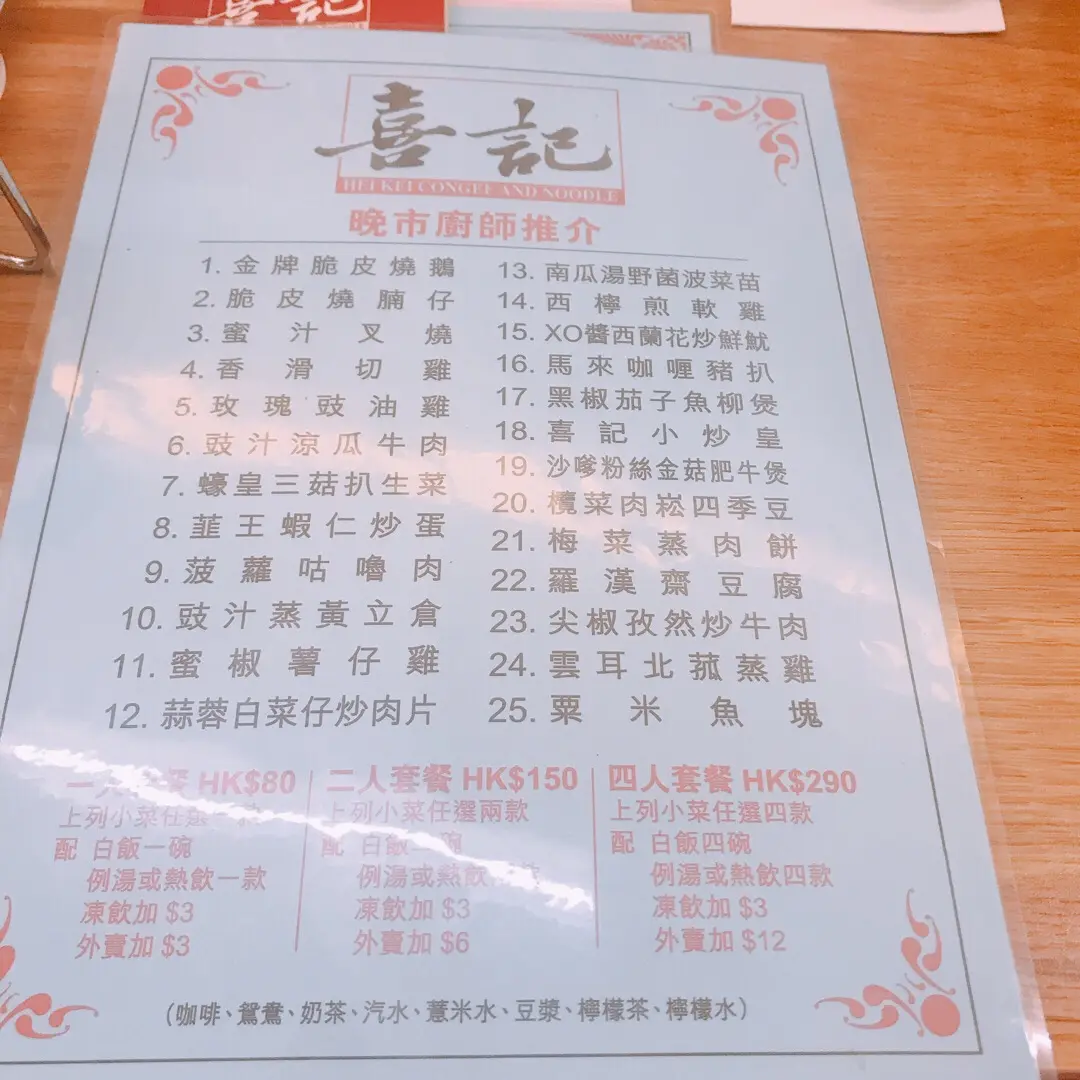 喜記
喜記
HEI KEI CONGEE AND NOODLE
晚市廚師推介
1. 金牌脆皮燒鵝
2. 脆皮燒腩仔
3. 蜜汁叉燒
4. 香滑切雞
5. 玫瑰豉油雞
6. 豉汁涼瓜牛肉
7. 蠔皇三菇扒生菜
8. 韮王蝦仁炒蛋
9. 菠蘿咕嚕肉
10. 豉汁蒸黃立倉
11. 蜜椒薯仔雞
12. 蒜蓉白菜仔炒肉片
13. 南瓜湯野菌菠菜苗
14. 西檸煎軟雞
15. XO醬西蘭花炒鮮魷
16. 馬來咖喱豬扒
17. 黑椒茄子魚柳煲
18. 喜記小炒皇
19. 沙嗲粉絲金菇肥牛煲
20. 欖菜肉崧四季豆
21. 梅菜蒸肉餅
22. 羅漢齋豆腐
23. 尖椒孜然炒牛肉
24. 雲耳北菰蒸雞
25. 粟米魚塊
一人套餐 HK$80
上列小菜任選一款
配 白飯一碗
例湯或熱飲一款
凍飲加 $3
外賣加 $3
二人套餐 HK$150
上列小菜任選兩款
配 白飯二碗
例湯或熱飲
凍飲加 $3
外賣加 $6
四人套餐 HK$290
上列小菜任選四款
配 白飯四碗
例湯或熱飲四款
凍飲加 $3
外賣加 $12
（咖啡、鴛鴦、奶茶、汽水、薏米水、豆漿、檸檬茶、檸檬水）